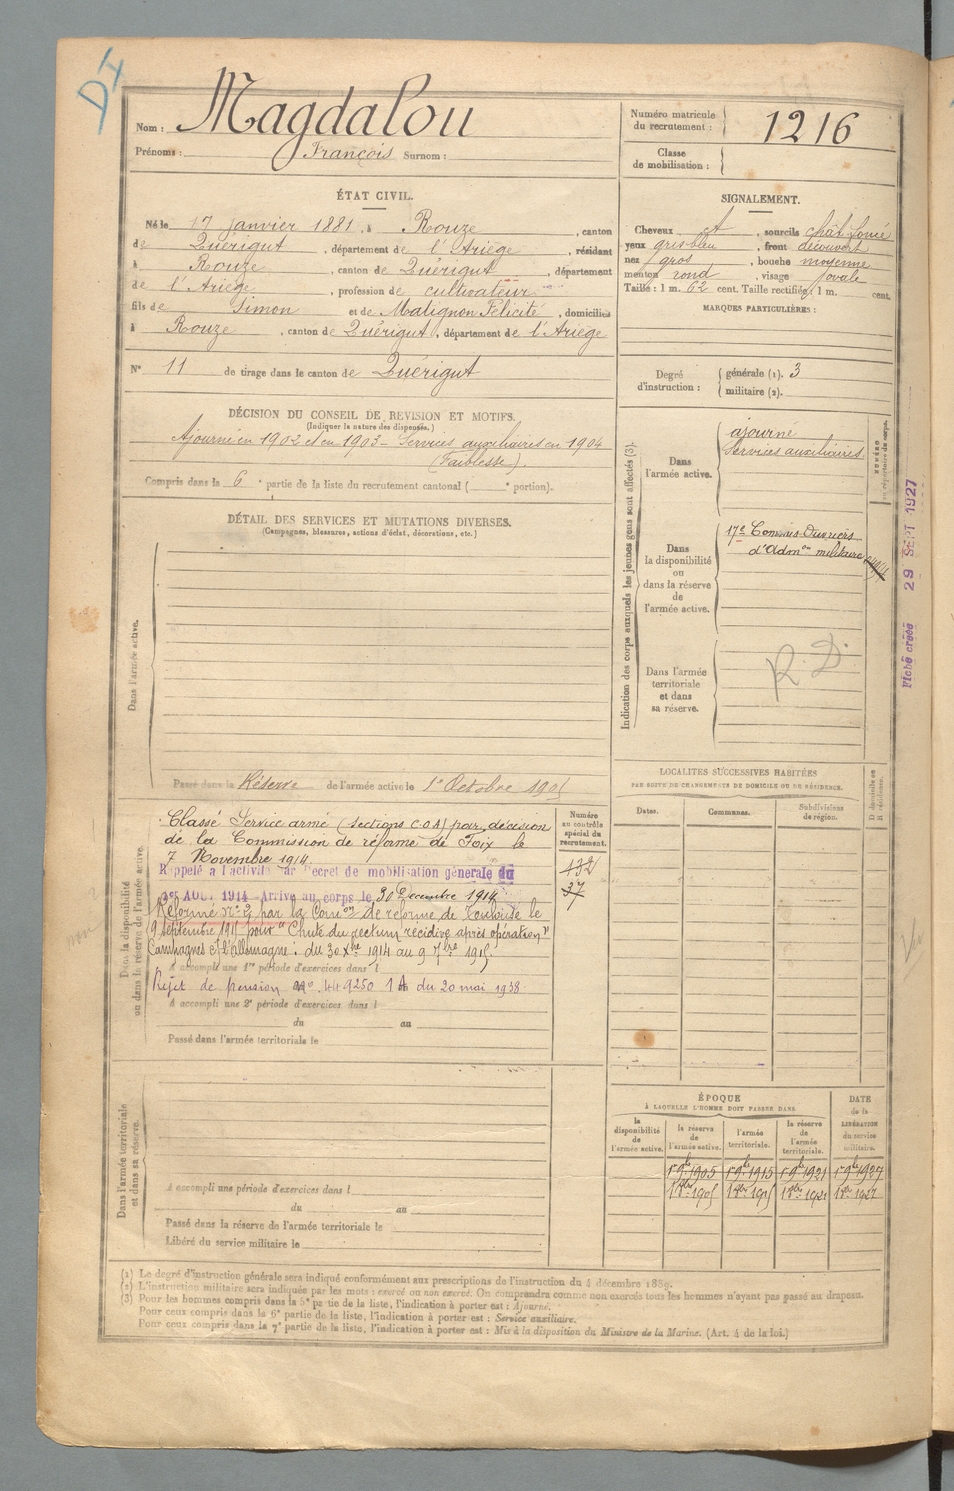 DI
Nom : Magdalou
Prénoms : François Surnom :
Numéro matricule du recrutement : 1216
Classe de mobilisation :
ÉTAT CIVIL.
Né le 17 janvier 1881, à Rouze, canton
de Quérigut, département de l'Ariège, résidant
à Rouze, canton de Quérigut, département
de l'Ariège, profession de cultivateur
fils de Simon et de Matignon Félicité, domiciliés
à Rouze, canton de Quérigut, département de l'Ariège
N° 11 de tirage dans le canton de Quérigut
SIGNALEMENT.
Cheveux et, sourcils chât foncé
yeux gris bleu, front découvert
nez gros, bouche moyenne
menton rond, visage ovale
Taille : 1 m. 62 cent. Taille rectifiée, 1 m. cent.
MARQUES PARTICULIÈRES :
Degré d'instruction :
générale (1). 3
militaire (2).
DÉCISION DU CONSEIL DE REVISION ET MOTIFS.
(Indiquer la nature des dispenses.)
Ajourné en 1902 et en 1903 - Services auxiliaires en 1904
(Faiblesse).
Compris dans la 6e partie de la liste du recrutement cantonal ( e portion).
DÉTAIL DES SERVICES ET MUTATIONS DIVERSES.
(Campagnes, blessures, actions d'éclat, décorations, etc.)
Dans l'armée active.
Passé dans la Réserve de l'armée active le 1er Octobre 1905
Indication des corps auxquels les jeunes gens sont affectés (3).
NUMÉRO
au répertoire du corps.
Dans l'armée active.
ajourné
Services auxiliaires
Dans la disponibilité ou dans la réserve de l'armée active.
17e Commis Ouvriers
d'Admon militaire
Dans l'armée territoriale et dans sa réserve.
R. D.
Fiche créée 29 SEPT 1927
Dans la disponibilité ou dans la réserve de l'armée active.
Classé Service armé (sections C.O.A) pour décision
de la Commission de réforme de Foix le
7 Novembre 1914.
Rappelé à l'activité par Décret de mobilisation générale du
1er AOUT 1914 Arrivé au corps le 30 Décembre 1914
Réformé n° 2 par la Comon de réforme de Toulouse le
9 septembre 1915 pour "Chute du rectum récidive après opération"
Campagnes Ct l'Allemagne : du 30 Xbre 1914 au 9 7bre 1915.
A accompli une 1re période d'exercices dans l
Rejet de pension n° 449250 1A du 20 mai 1938
A accompli une 2e période d'exercices dans l
du au
Passé dans l'armée territoriale le
Numéro au contrôle spécial du recrutement.
432
37
LOCALITES SUCCESSIVES HABITÉES
PAR SUITE DE CHANGEMENTS DE DOMICILE OU DE RÉSIDENCE.
Dates.
Communes.
Subdivisions de région.
D domicile ou R résidence.
Dans l'armée territoriale et dans sa réserve.
A accompli une période d'exercices dans l
du au
Passé dans la réserve de l'armée territoriale le
Libéré du service militaire le
ÉPOQUE
À LAQUELLE L'HOMME DOIT PASSER DANS
la disponibilité de l'armée active.
la réserve de l'armée active.
l'armée territoriale.
la réserve de l'armée territoriale.
DATE de la LIBÉRATION du service militaire.
1r 9bre 1905 1r 9bre 1915 1r 9bre 1921 1r 9bre 1927
1er 8bre 1905 1er 8bre 1915 1er 8bre 1921 1er 8bre 1927
(1) Le degré d'instruction générale sera indiqué conformément aux prescriptions de l'instruction du 4 décembre 1889.
(2) L'instruction militaire sera indiquée par les mots : exercé ou non exercé. On comprendra comme non exercés tous les hommes n'ayant pas passé au drapeau.
(3) Pour les hommes compris dans la 5e partie de la liste, l'indication à porter est : Ajourné.
Pour ceux compris dans la 6e partie de la liste, l'indication à porter est : Service auxiliaire.
Pour ceux compris dans la 7e partie de la liste, l'indication à porter est : Mis à la disposition du Ministre de la Marine. (Art. 4 de la loi.)